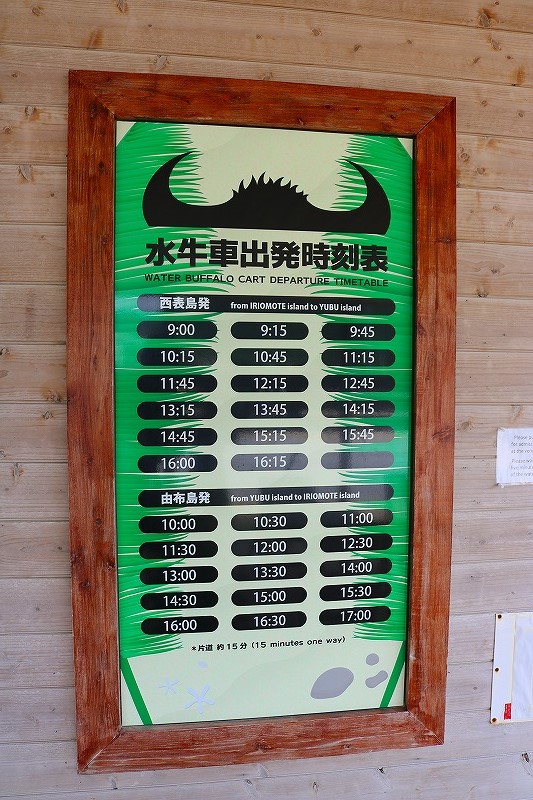 水牛車出発時刻表
WATER BUFFALO CART DEPARTURE TIMETABLE
西表島発 from IRIOMOTE island to YUBU island
9:00 9:15 9:45
10:15 10:45 11:15
11:45 12:15 12:45
13:15 13:45 14:15
14:45 15:15 15:45
16:00 16:15
由布島発 from YUBU island to IRIOMOTE island
10:00 10:30 11:00
11:30 12:00 12:30
13:00 13:30 14:00
14:30 15:00 15:30
16:00 16:30 17:00
*片道 約15分 (15 minutes one way)
Please
for
at the
Please